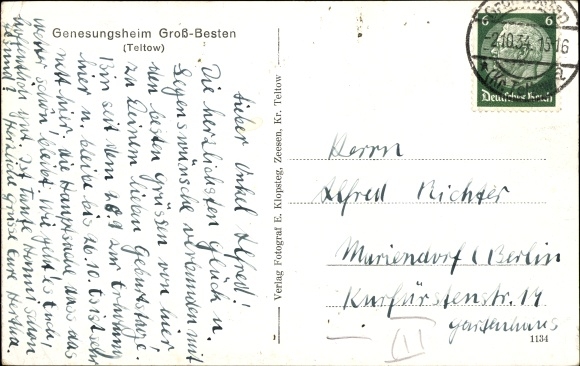 Genesungsheim Groß-Besten
(Teltow)
Lieber Onkel Alfred!
Die herzlichsten Glück u.
Segenswünsche verbunden mit
den besten Grüssen von hier
zu Deinem lieben Geburtstage!
Bin seit dem 20.9 zur Erholung
hier u. bleibe bis 20.10. Es ist sehr
nett hier, die Hauptsache dass das
Wetter schön bleibt. Wie geht es Euch,
hoffentlich gut. Ist Tante schon
gesund? Herzliche Grüsse Eure Hertha
Verlag Fotograf E. Klopsteg, Zeesen, Kr. Teltow
6 6
Deutsches Reich
-2.10.34.15-16
Herrn
Alfred Richter
Mariendorf (Berlin
Kurfürstenstr. 14
Gartenhaus
1134